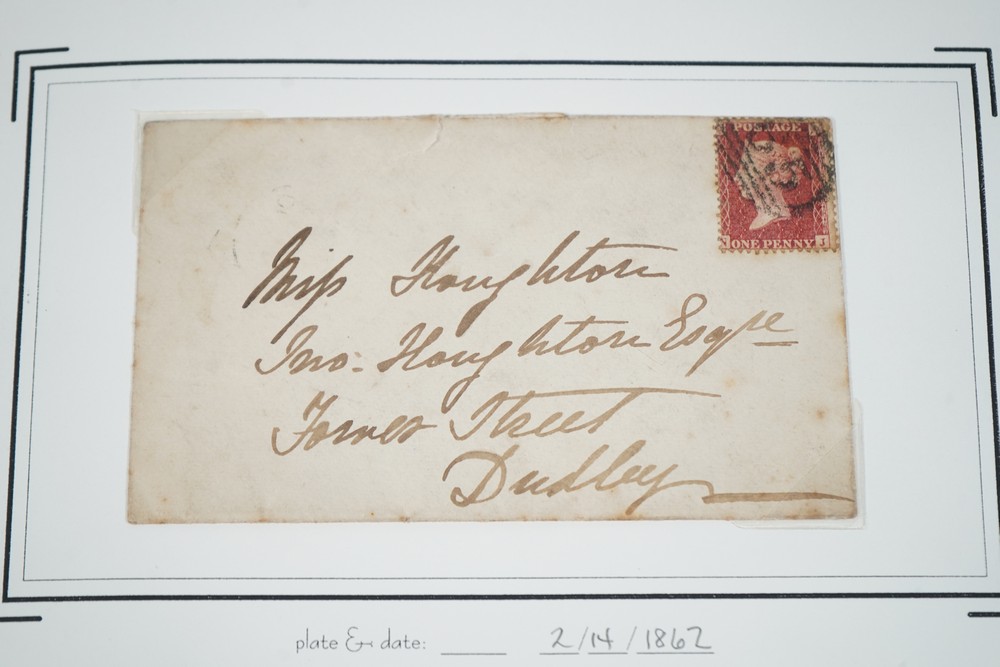 POSTAGE
J
ONE PENNY
Miss Houghton
Jno: Houghton Esqre
Tower Street
Dudley
plate & date: ____ 2/14/1862